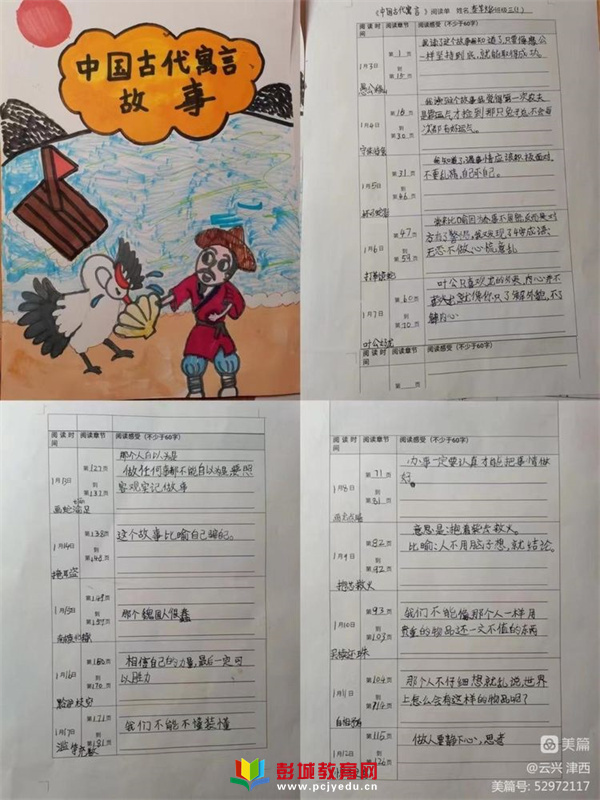 中国古代寓言
故事
《中国古代寓言》阅读单 姓名
阅读时间
阅读章节
阅读感受(不少于60字)
1月3日
第1页
到
第15页
我读了这个故事
一样坚持到底,就能取得成功。
愚公移山
1月4日
第16页
到
第30页
才捡到那只兔子也不会每
次都有好运气。
守株待兔
1月5日
第31页
到
第46页
我知道了遇事情应该积极面对,
不要乱猜,自己吓自己。
杯弓蛇影
1月6日
第47页
到
第59页
无恐不做心慌意乱
打草惊蛇
1月7日
第60页
到
第70页
叶公只喜欢龙的外表,内心并不
解内心
叶公好龙
阅读时间
阅读章节
阅读感受(不少于60字)
第 页
到
第 页
阅读时间
阅读章节
阅读感受(不少于60字)
1月13日
第127页
到
第132页
那个人自以为是
做任何事都不能自以为是,要照
客观实记,做事
画蛇添足
1月14日
第138页
到
第148页
这个故事比喻自己骗自己。
掩耳盗
1月15日
第149页
到
第159页
那个魏国人很蠢
南辕北辙
1月16日
第160页
到
第170页
相信自己的力量,最后一定可
以胜力
黔驴技穷
1月17日
第171页
到
第181页
我们不能不懂装懂
滥竽充数
阅读时间
阅读章节
阅读感受(不少于60字)
1月8日
第71页
到
第81页
办事一定要认真才能把事情做
好。
1月9日
第82页
到
第92页
意思是:抱着柴去救火。
比喻:人不用脑子想,就结论。
抱薪救火
1月10日
第93页
到
第103页
我们不能像那个人一样用
贵重的物品还一文不值的东西
买椟还珠
1月11日
第104页
到
第114页
那个人不仔细想就乱说,世界
上怎么会有这样的物品呢?
自相矛盾
1月12日
第115页
到
第126页
做人要静下心,思考
彭城教育网
www.pcjyedu.cn
美篇
@云兴 津西
美篇号: 52972117